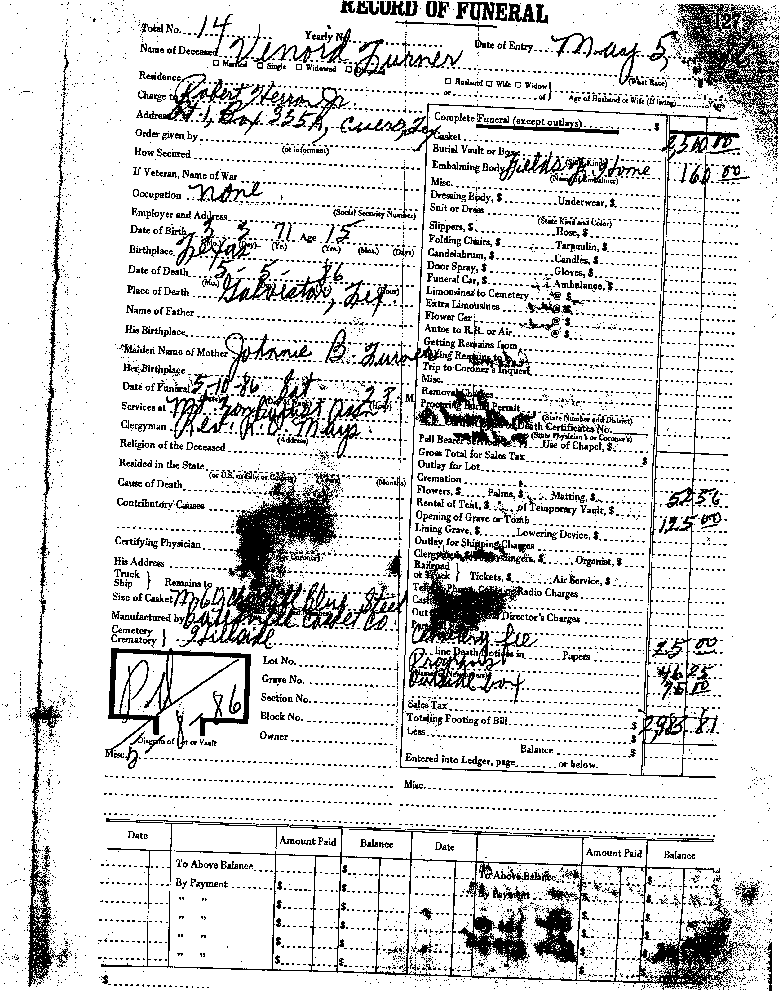 RECORD OF FUNERAL
127
Total No. 14 Yearly No.
Name of Deceased Venoid Turner Date of Entry May 5,
Married Single Widowed (What Race)
Residence Husband Wife Widow
or of Age of Husband or Wife (If living)
Charge to Robert Herron Jr.
Address Rt. 1, Box 335A, Cuero, Tex
Order given by (or informant)
How Secured
If Veteran, Name of War
Occupation none
Employer and Address (Social Security Number)
Date of Birth 3 3 71 Age 15
(Yr.) (Yrs.) (Mos.) (Days)
Birthplace Texas
Date of Death 5-5-86
Place of Death Galveston, Tex.
Name of Father
His Birthplace
Maiden Name of Mother Johnnie B. Turner
Her Birthplace
Date of Funeral 5-10-86 Sat 2 P. M
Services at Mt.
Clergyman Rev. R. O. Mays
(Address)
Religion of the Deceased
Resided in the State
(or U.S. or City or County) (Months)
Cause of Death
Contributory Causes
Certifying Physician
(or Coroner)
His Address
Truck Ship Remains to
Size of Casket Blue Steel
Manufactured by Casket Co.
Cemetery Crematory Hillside
Lot No.
Grave No.
Section No.
Block No.
Owner
Pd
8 86
Diagram of Lot or Vault
Misc.
Complete Funeral (except outlays) $
Casket 2,500 00
Burial Vault or Box (State Kind)
Embalming Body Fields Home 160 00
(Name of Embalmer)
Misc.
Dressing Body, $ Underwear, $
Suit or Dress
(State Kind and Color)
Slippers, $ Hose, $
Folding Chairs, $ Tarpaulin, $
Candelabrum, $ Candles, $
Door Spray, $ Gloves, $
Funeral Car, $ Ambulance, $
Limousines to Cemetery @ $
Extra Limousines @ $
Flower Car @ $
Autos to R.R. or Air @ $
Getting Remains from
Taking Remains to
Trip to Coroner's Inquest
Misc.
Removal Charges
Procuring Burial Permit
(State Number and District)
Death Certificates No.
(State Physician's or Coroner's)
Pall Bearer Use of Chapel, $
Gross Total for Sales Tax $
Outlay for Lot
Cremation
Flowers, $ Palms, $ Matting, $ 52 56
Rental of Tent, $ of Temporary Vault, $
Opening of Grave or Tomb 125 00
Lining Grave, $ Lowering Device, $
Outlay for Shipping Charges
Clergyman Singers, $ Organist, $
Railroad or Truck Tickets, $ Air Service, $
Radio Charges
Director's Charges
Cemetery fee 25 00
line Death Notices in Papers
Programs 46 25
box 75 00
Sales Tax
Totaling Footing of Bill $ 2,983 81
Less $
Balance $
Entered into Ledger, page or below.
Misc.
Date Amount Paid Balance Date Amount Paid Balance
To Above Balance $ To Above Balance $
By Payment $ $ By Payment $ $
" " $ $ $
" " $ $ $
" " $ $ $
" " $ $ $
$